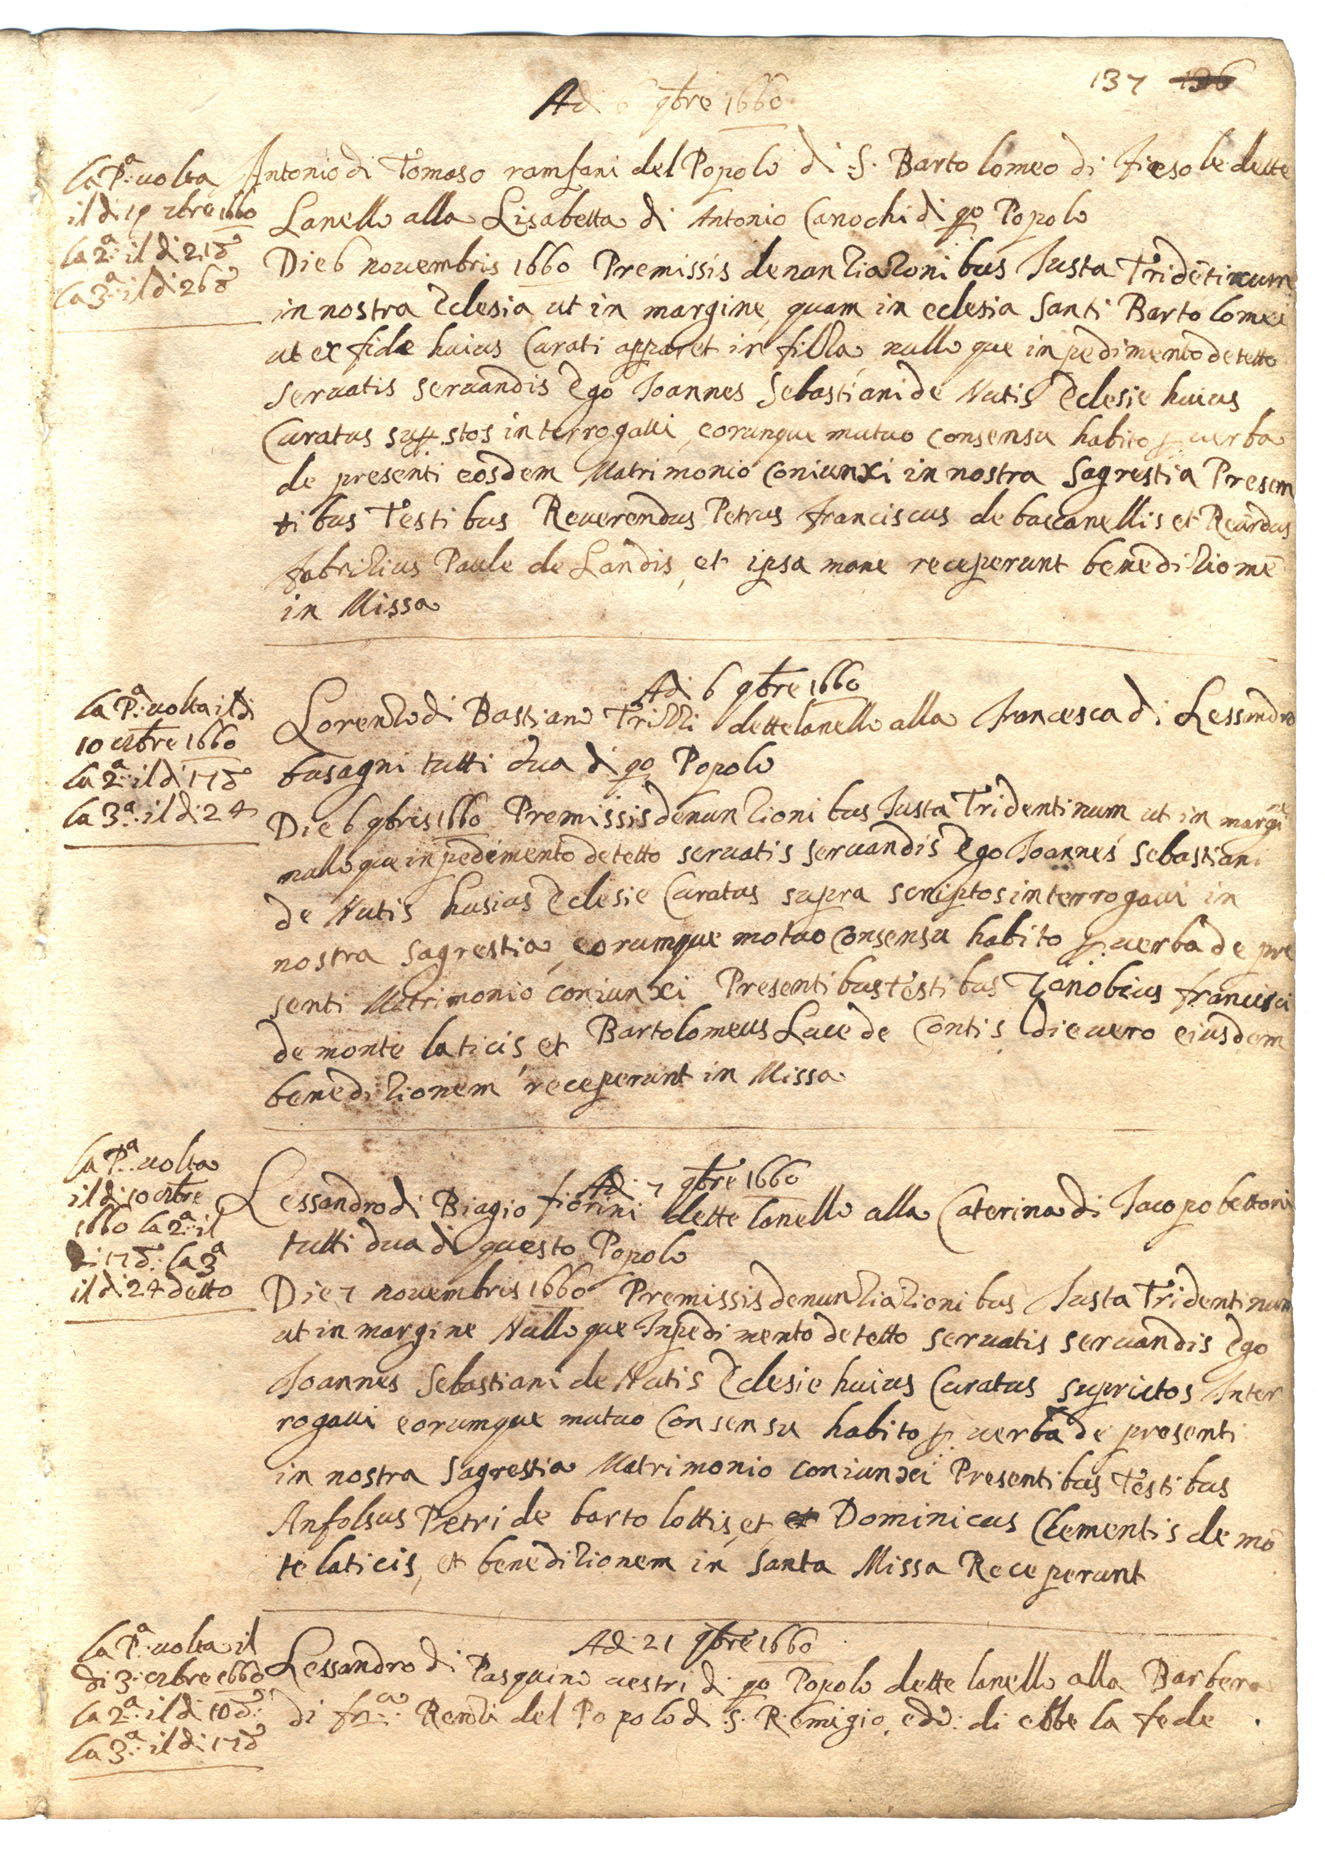 137 136
Ad 6 9bre 1660
la Pa: uolta
il di 19 zbre 1660
la 2a: il di 21 do
la 3a: il di 26 do
Antonio di Tomaso ramfani del Popolo di S. Bartolomeo di Fiesole dette
Lanello alla Lisabetta di Antonio Canochi di qo Popolo
Die 6 nouembris 1660 Premissis denonziazionibus Justa Tridetinum
in nostra Eclesia ut in margine, quam in eclesia Santi Bartolomei
ut ex fide huius Curati apparet in filza nulloque inpedimento detetto
seruatis seruandis Ego Joannes Sebastiani de Nutis Eclesie huius
Curatus suprastos interrogaui, eorunque mutuo consensu habito p uerba
de presenti eosdem Matrimonio coniunxi in nostra Sagrestia Presen
tibus Testibus Reuerendus Petrus franciscus de baccanellis et Reurdus
fabrizius Paule de Landis, et ipsa mane receperunt benedizione
in Missa
Ad: 6 9bre 1660
la Pa: uolta il di
10 ottbre 1660
la 2a: il di 17 do
la 3a: il di 24
Lorenzo di Bastiano Trilli dette lanello alla francesca di Lessandro
busagni tutti dua di qo Popolo
Die 6 9bris 1660 Premissis denunzionibus Justa Tridentinum ut in margine
nulloque inpedimento detetto seruatis seruandis Ego Joannes Sebastiani
de Nutis husius Eclesie Curatus supra scriptos interrogaui in
nostra Sagrestia, eorumque motuo Consensu habito p uerba de pre
senti Matrimonio coniunxi Presentibus testibus Zanobius francisci
de monte laticis et Bartolomeus Luce de Contis die uero eiusdem
benedizionem receperunt in Missa
Ad: 7 9bre 1660
la Pa: uolta
il di 10 ottbre
1660 la 2a: il
di 17 do: la 3a
il di 24 detto
Lessandro di Biagio fiorini dette lanello alla Caterina di Jacopo bettoni
tutti dua di questo Popolo
Die 7 nouembris 1660 Premissis denunziazionibus Justa Tridentinum
ut in margine Nulloque Inpedimento detetto seruatis seruandis Ego
Joannes Sebastiani de Nutis Eclesie huius Curatus suprictos Inter
rogaui eorumque mutuo Consensu habito p uerba de presenti
in nostra Sagrestia Matrimonio coniunxi Presentibus Testibus
Anfolsus Petri de bartolottis, et et Dominicus Clementis de mo
te laticis, et benedizionem in Santa Missa Receperunt
Ad: 21 9bre 1660
la Pa: uolta il
di 3: ottbre 1660
la 2a: il di 10 do:
la 3a: il di 17 do
Lessandro di Pasquino uestri di qo Popolo dette lanello alla Barbera
di fra: Renzi del Popolo di S. Remigio, edo: di ebbe la fede